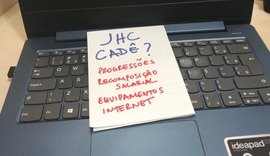 JHC
CADÊ?
PROGRESSÕES
RECOMPOSIÇÃO
SALARIAL
EQUIPAMENTOS
INTERNET
ideapad